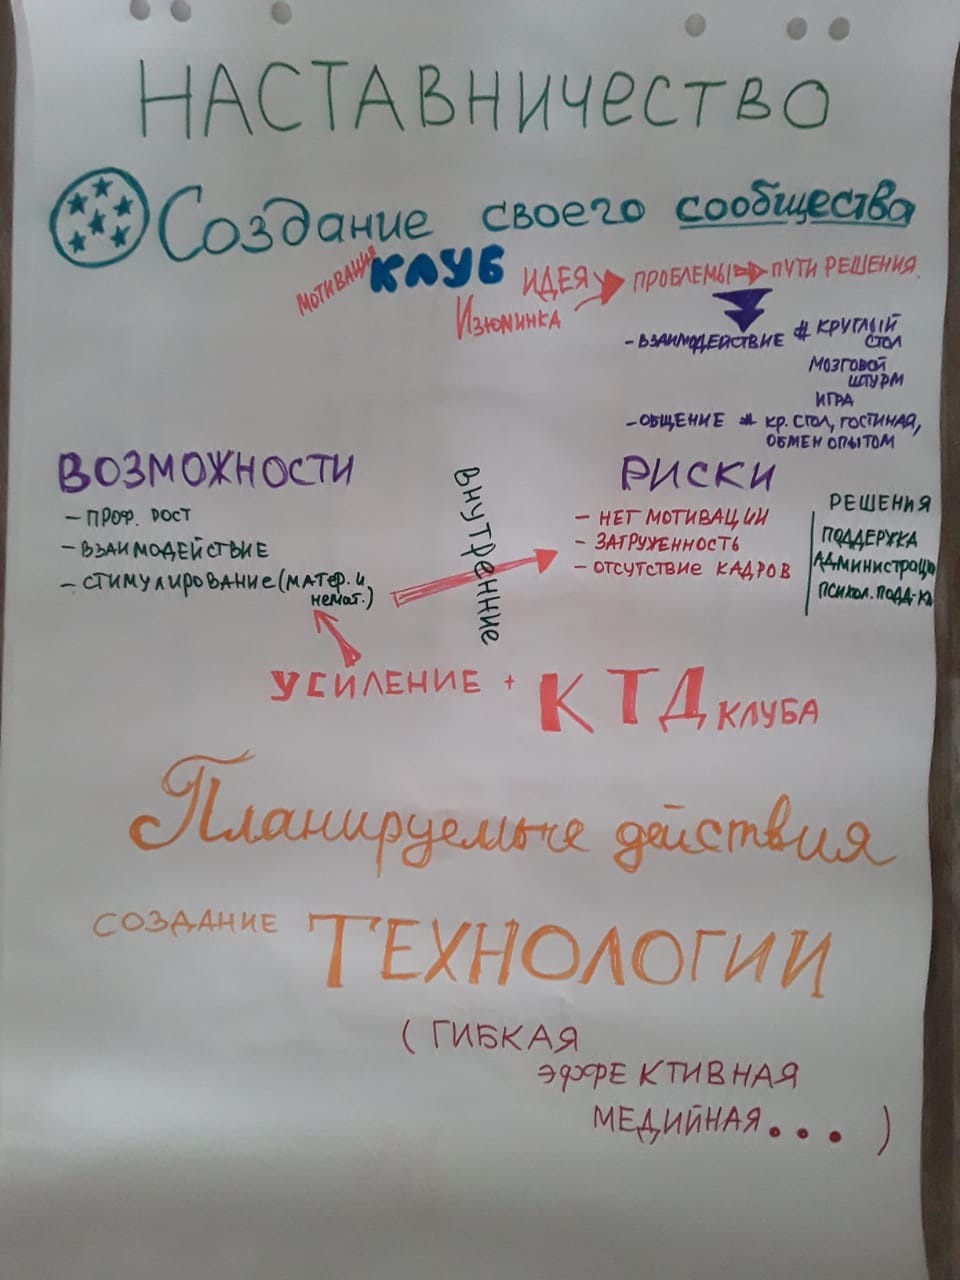 НАСТАВНИЧЕСТВО
Создание своего сообщества
МОТИВАЦИЯ КЛУБ ИДЕЯ ПРОБЛЕМЫ ПУТИ РЕШЕНИЯ
ИЗЮМИНКА
- ВЗАИМОДЕЙСТВИЕ # КРУГЛЫЙ
СТОЛ
МОЗГОВОЙ
ШТУРМ
ИГРА
- ОБЩЕНИЕ # КР. СТОЛ, ГОСТИНАЯ,
ОБМЕН ОПЫТОМ
ВОЗМОЖНОСТИ
- ПРОФ. РОСТ
- ВЗАИМОДЕЙСТВИЕ
- СТИМУЛИРОВАНИЕ (МАТЕР. И
НЕМАТ.)
ВНУТРЕННИЕ
РИСКИ
- НЕТ МОТИВАЦИИ
- ЗАГРУЖЕННОСТЬ
- ОТСУТСТВИЕ КАДРОВ
РЕШЕНИЯ
ПОДДЕРЖКА
АДМИНИСТРАЦИ
ПСИХОЛ. ПОДД-КА
УСИЛЕНИЕ + КТД КЛУБА
Планируемые действия
СОЗДАНИЕ ТЕХНОЛОГИИ
( ГИБКАЯ
ЭФФЕКТИВНАЯ
МЕДИЙНАЯ... )